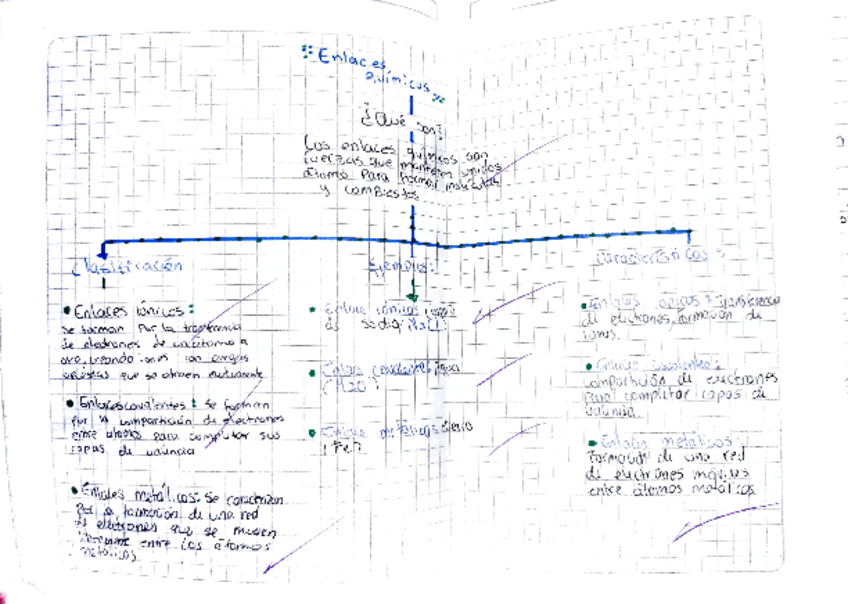 Enlaces
químicos
¿Qué son?
Los enlaces químicos son
fuerzas que mantienen unidos
átomos para formar moléculas
y compuestos
Clasificación
Ejemplos:
Características:
• Enlaces iónicos:
Se forman por la
de electrones de un átomo a
otro, creando iones con cargas
opuestas que se atraen mutuamente
• Enlaces covalentes: Se forman
por la compartición de electrones
entre átomos para completar sus
capas de valencia
• Enlaces metálicos: Se caracterizan
por la formación de una red
de electrones que se mueven
libremente entre los átomos
metálicos
• Enlace iónico
de sodio (NaCl)
• Enlace covalente: Agua
(H2O)
• Enlace metálico:
(Fe)
• Enlaces iónicos: Transferencia
de electrones, formación de
iones.
• Enlaces covalentes:
compartición de electrones
para completar capas de
valencia
• Enlaces metálicos:
Formación de una red
de electrones móviles
entre átomos metálicos